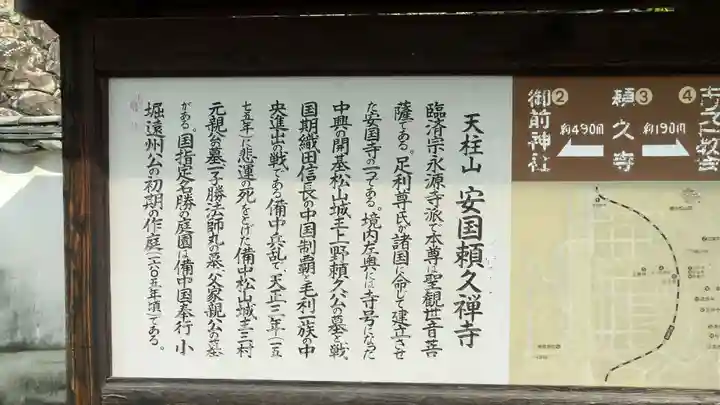 天柱山 安国頼久禅寺
臨済宗永源寺派で本尊は聖観世音菩
薩である。足利尊氏が諸国に命して建立させ
た安国寺の一つである。境内左奥には寺号になった
中興の開基松山城主上野頼久公の墓と戦
国期織田信長の中国制覇と毛利一族の中
央進出の戦である備中兵乱で天正三年(一五
七五年)に悲運の死をとげた備中松山城主三村
元親公の墓一子勝法師丸の墓父家親公の墓
がある。国指定名勝の庭園は備中国奉行小
堀遠州公の初期の作庭(一六〇五年頃)である。
②
御前神社
約490m
③
頼久寺
約190m
④